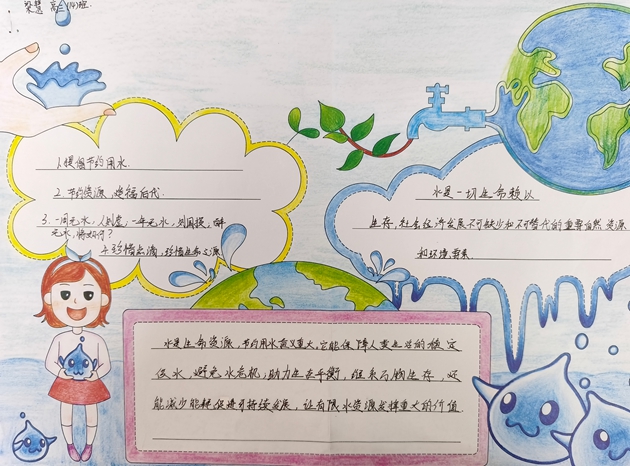 梁慧 高二(14)班.
1.提倡节约用水.
2.节约资源,造福后代.
3.一周无水,人制造;一年无水,则国损,
无水,将如何?
4.珍惜点滴,珍惜生命之源
水是一切生命赖以
生存,社会经济发展不可缺少和不可替代的重要自然资源
和环境要素.
水是生命资源,节约用水意义重大,它能保障人类生活的稳定
供水,避免水危机,助力生态平衡,维系万物生存,还
能减少能耗促进可持续发展,让有限水资源发挥重大的价值.